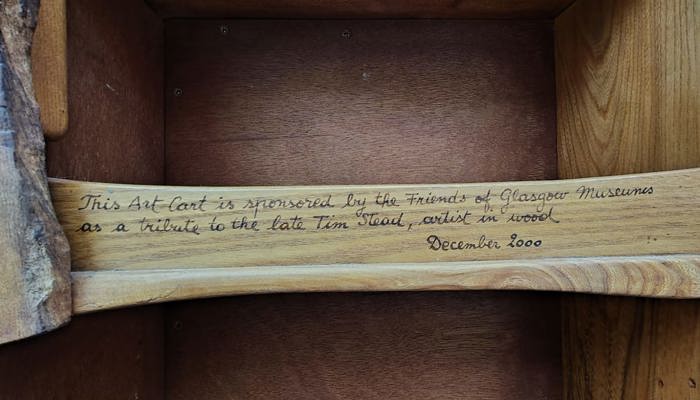 This Art Cart is sponsored by the Friends of Glasgow Museums
as a tribute to the late Tim Stead, artist in wood
December 2000